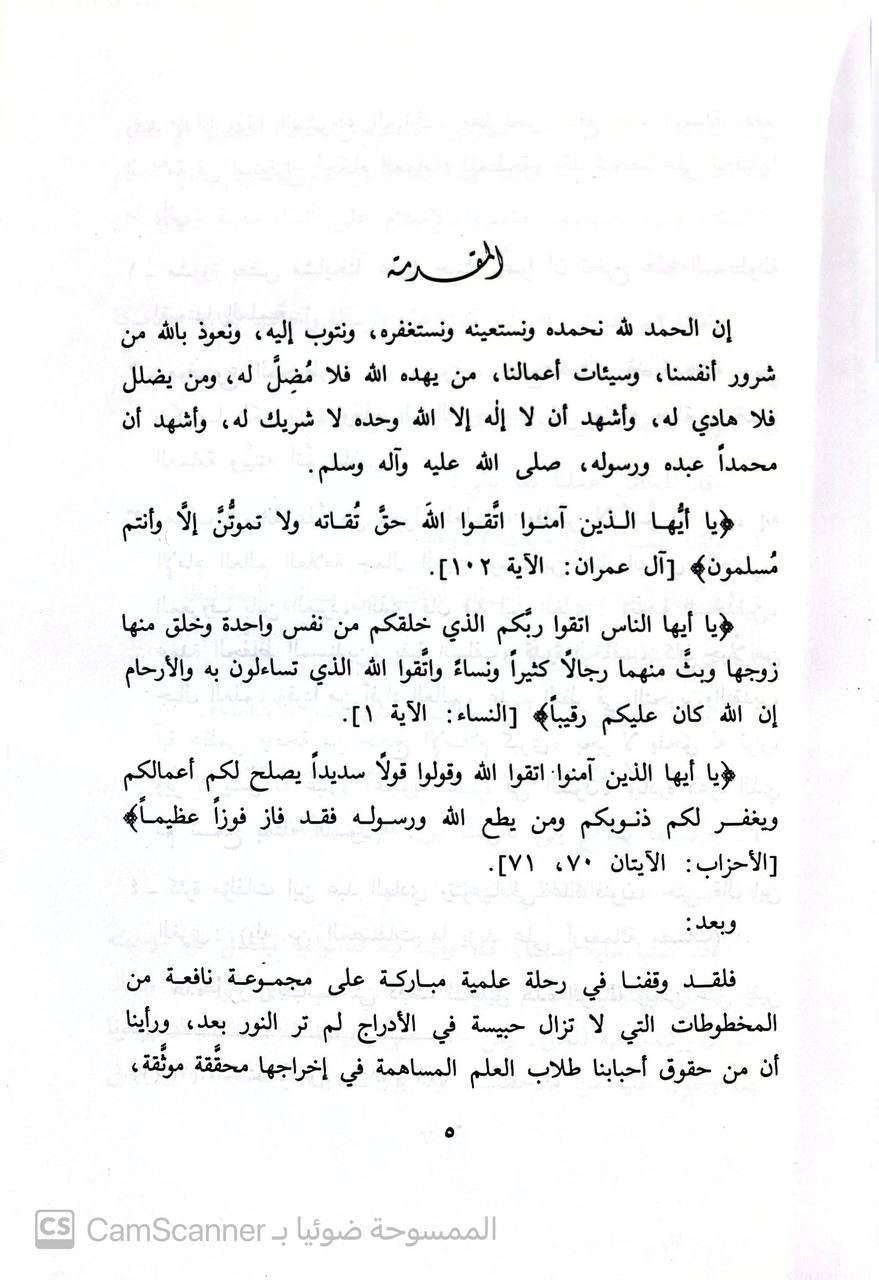 المقدمة
إن الحمد لله نحمده ونستعينه ونستغفره، ونتوب إليه، ونعوذ بالله من
شرور أنفسنا، وسيئات أعمالنا، من يهده الله فلا مُضِلَّ له، ومن يضلل
فلا هادي له، وأشهد أن لا إلٰه إلا الله وحده لا شريك له، وأشهد أن
محمداً عبده ورسوله، صلى الله عليه وآله وسلم.
﴿يا أيُّها الذين آمنوا اتَّقوا اللهَ حقَّ تُقاته ولا تموتُنَّ إلَّا وأنتم
مُسلمون﴾ [آل عمران: الآية ١٠٢].
﴿يا أيها الناس اتقوا ربَّكم الذي خلقكم من نفس واحدة وخلق منها
زوجها وبثَّ منهما رجالاً كثيراً ونساءً واتَّقوا الله الذي تساءلون به والأرحام
إن الله كان عليكم رقيباً﴾ [النساء: الآية ١].
﴿يا أيها الذين آمنوا اتقوا الله وقولوا قولاً سديداً يصلح لكم أعمالكم
ويغفر لكم ذنوبكم ومن يطع الله ورسوله فقد فاز فوزاً عظيماً﴾
[الأحزاب: الآيتان ٧٠، ٧١].
وبعد:
فلقد وقفنا في رحلة علمية مباركة على مجموعة نافعة من
المخطوطات التي لا تزال حبيسة في الأدراج لم تر النور بعد، ورأينا
أن من حقوق أحبابنا طلاب العلم المساهمة في إخراجها محقَّقة موثَّقة،
٥
CS الممسوحة ضوئيا بـ CamScanner